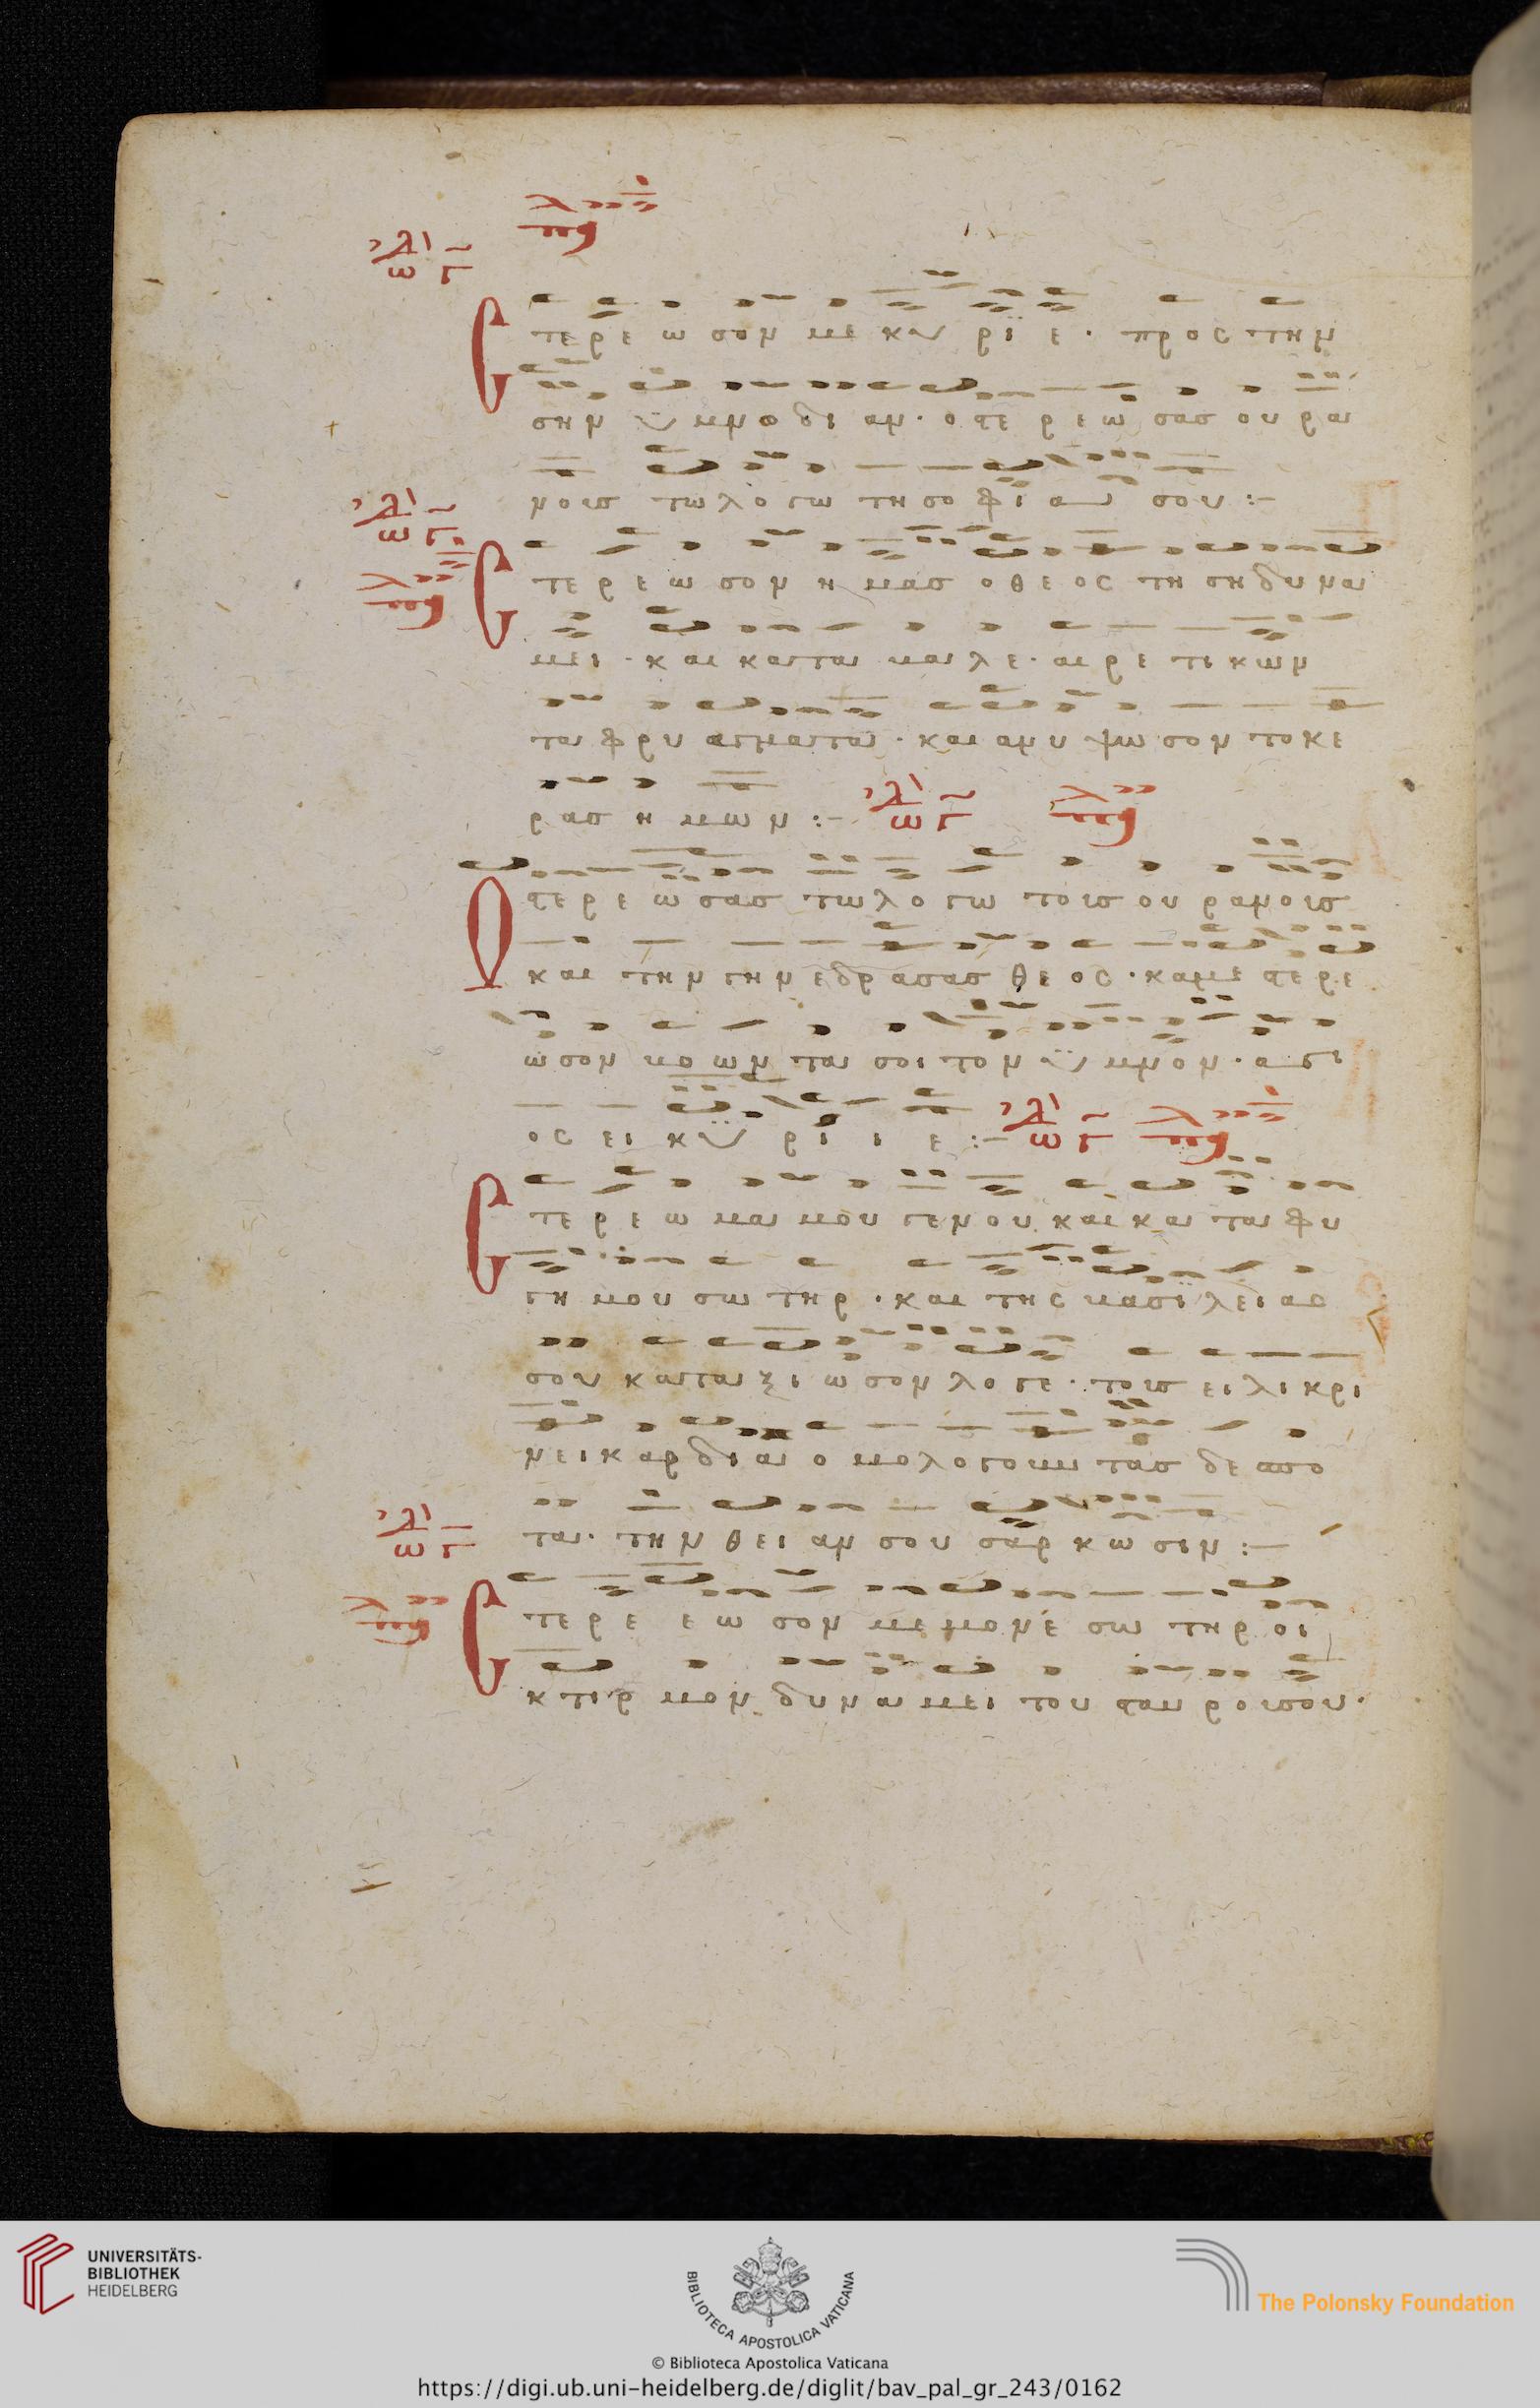 Cτερεωσον με κυ ρϊ ε · προς την
σην ϋμνωδι αν · οστε ρεωσας ουρα
νους τω λογω τη σο φι α σου :-
Cτερεωσον ημας ο θεος τη ση δυνα
μει · και κατα βαλε · αιρετικων
τα φρυαγματα · και ανυψωσον το κε
ρας ημων :-
Ο στερεωσας τω λογω τους ουρανους
και την γην εδρασας θεος · καμε στερε
ωσον βοωντα σοι τον ϋμνον · αγι
ος ει κϋ ρι ι ε :-
Cτερεωμα μου γενου και κατα φυ
γη μου σωτηρ · και της βασιλειας
σου καταξιωσον λογε · τους ειλικρι
νει καρδια ομολογουντας δεσπο
τα · την θειαν σου σαρκωσιν :-
Cτερε εωσον με μονε σωτηρ οι
κτιρμον δυναμει του σταυρου σου ·
UNIVERSITÄTS-
BIBLIOTHEK
HEIDELBERG
BIBLIOTECA APOSTOLICA VATICANA
The Polonsky Foundation
© Biblioteca Apostolica Vaticana
https://digi.ub.uni-heidelberg.de/diglit/bav_pal_gr_243/0162